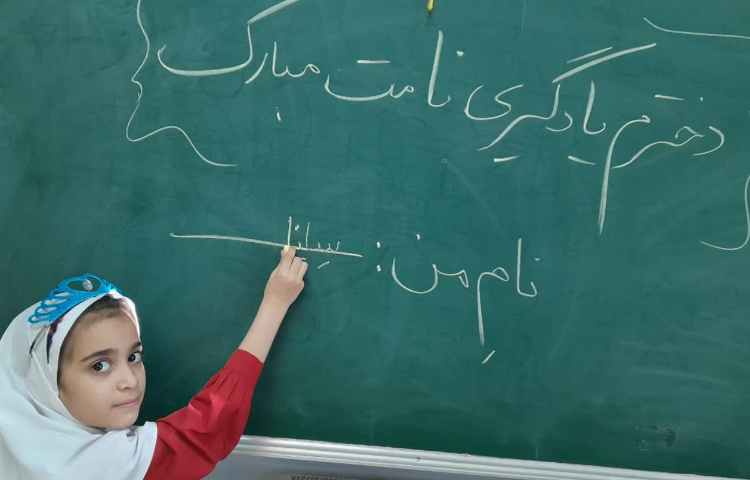 دخترم یادگیری نامت مبارک
نامِ من: